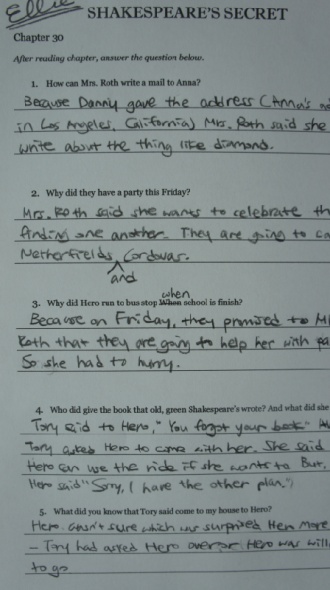 Ellie
SHAKESPEARE'S SECRET
Chapter 30
After reading chapter, answer the question below.
1. How can Mrs. Roth write a mail to Anna?
Because Danny gave the address (Anna's
in Los Angeles, California) Mrs. Roth said she
write about the thing like diamond.
2. Why did they have a party this Friday?
Mrs. Roth said she wants to celebrate
finding one another. They are going to
Netherfields, Cordovas.
and
when
3. Why did Hero run to bus stop When school is finish?
Because on Friday, they promised to
Roth that they are going to help her with
So she had to hurry.
4. Who did give the book that old, green Shakespeare's wrote? And what did she
Tory said to Hero, "You forgot your book"
Tory asked Hero to come with her. She said
Hero can use the ride if she wants to. But,
Hero said "Sorry, I have the other plan."
5. What did you know that Tory said come to my house to Hero?
Hero wasn't sure which was surprised Her more
– Tory had asked Hero over or Hero was
to go